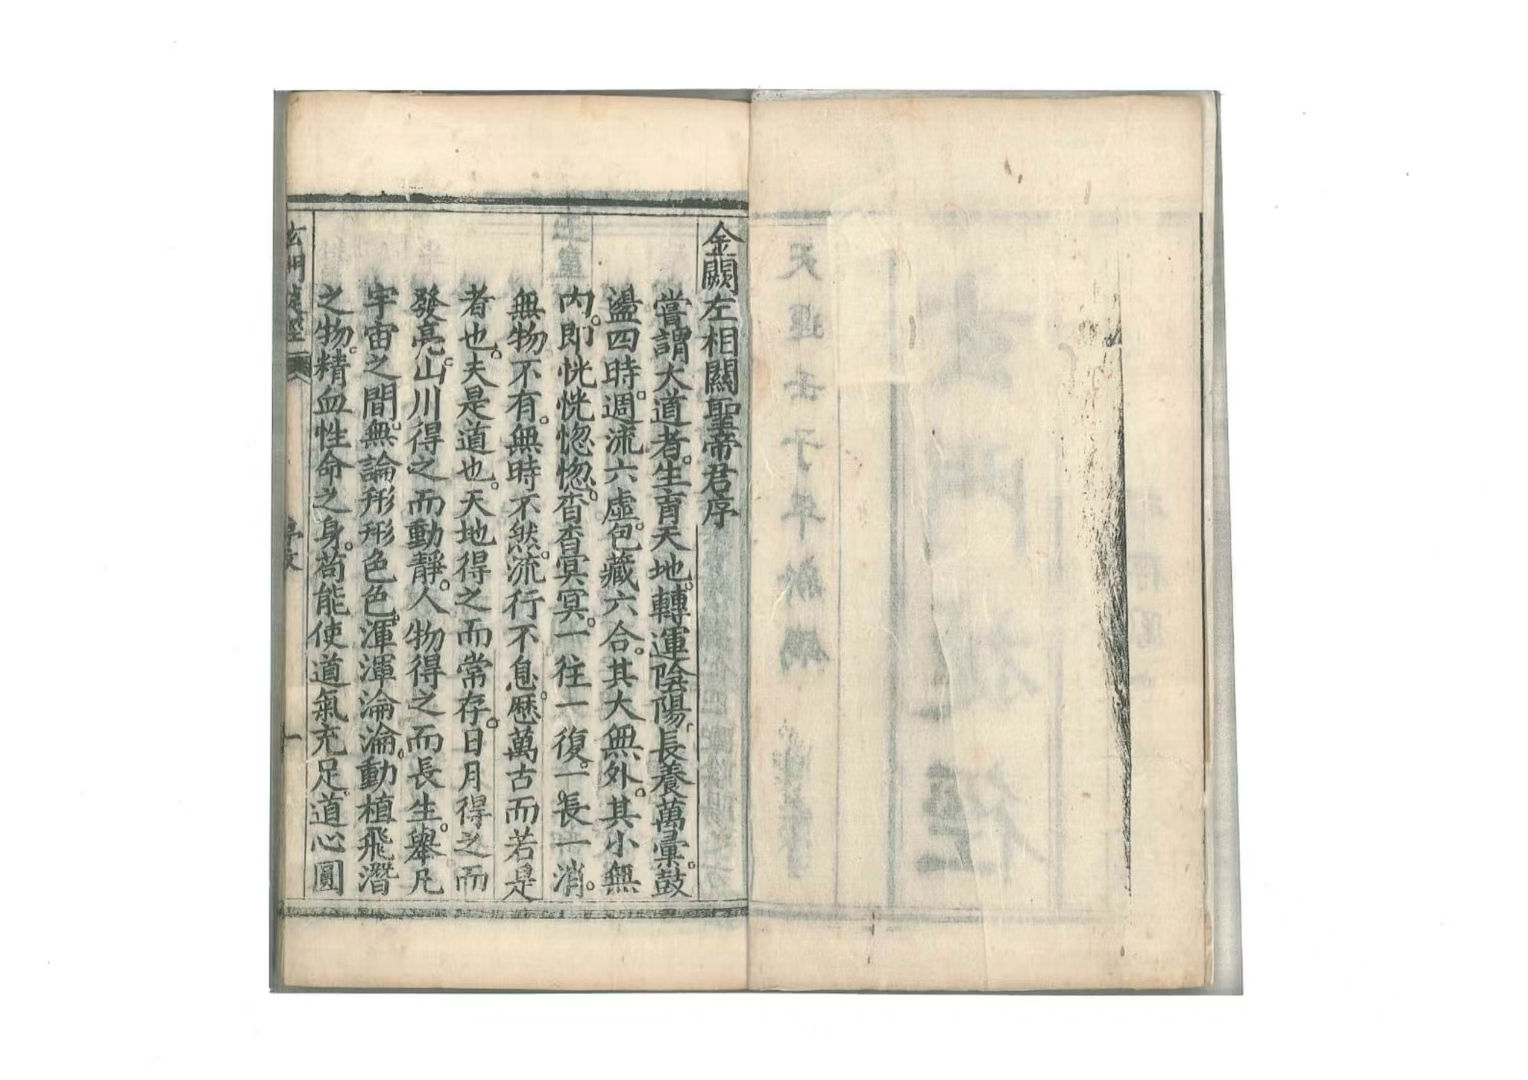 金闕左相關聖帝君序
嘗謂大道者。生育天地。轉運陰陽。長養萬彙。鼓
盪四時。週流六虛。包藏六合。其大無外。其小無
內。即恍恍惚惚。杳杳冥冥。一往一復。一長一消。
無物不有。無時不然。流行不息。歷萬古而若是
者也。夫是道也。天地得之而常存。日月得之而
發亮。山川得之而動靜。人物得之而長生。舉凡
宇宙之間。無論形形色色。渾渾淪淪。動植飛潛
之物。精血性命之身。苟能使道氣充足。道心圓
玄門
一